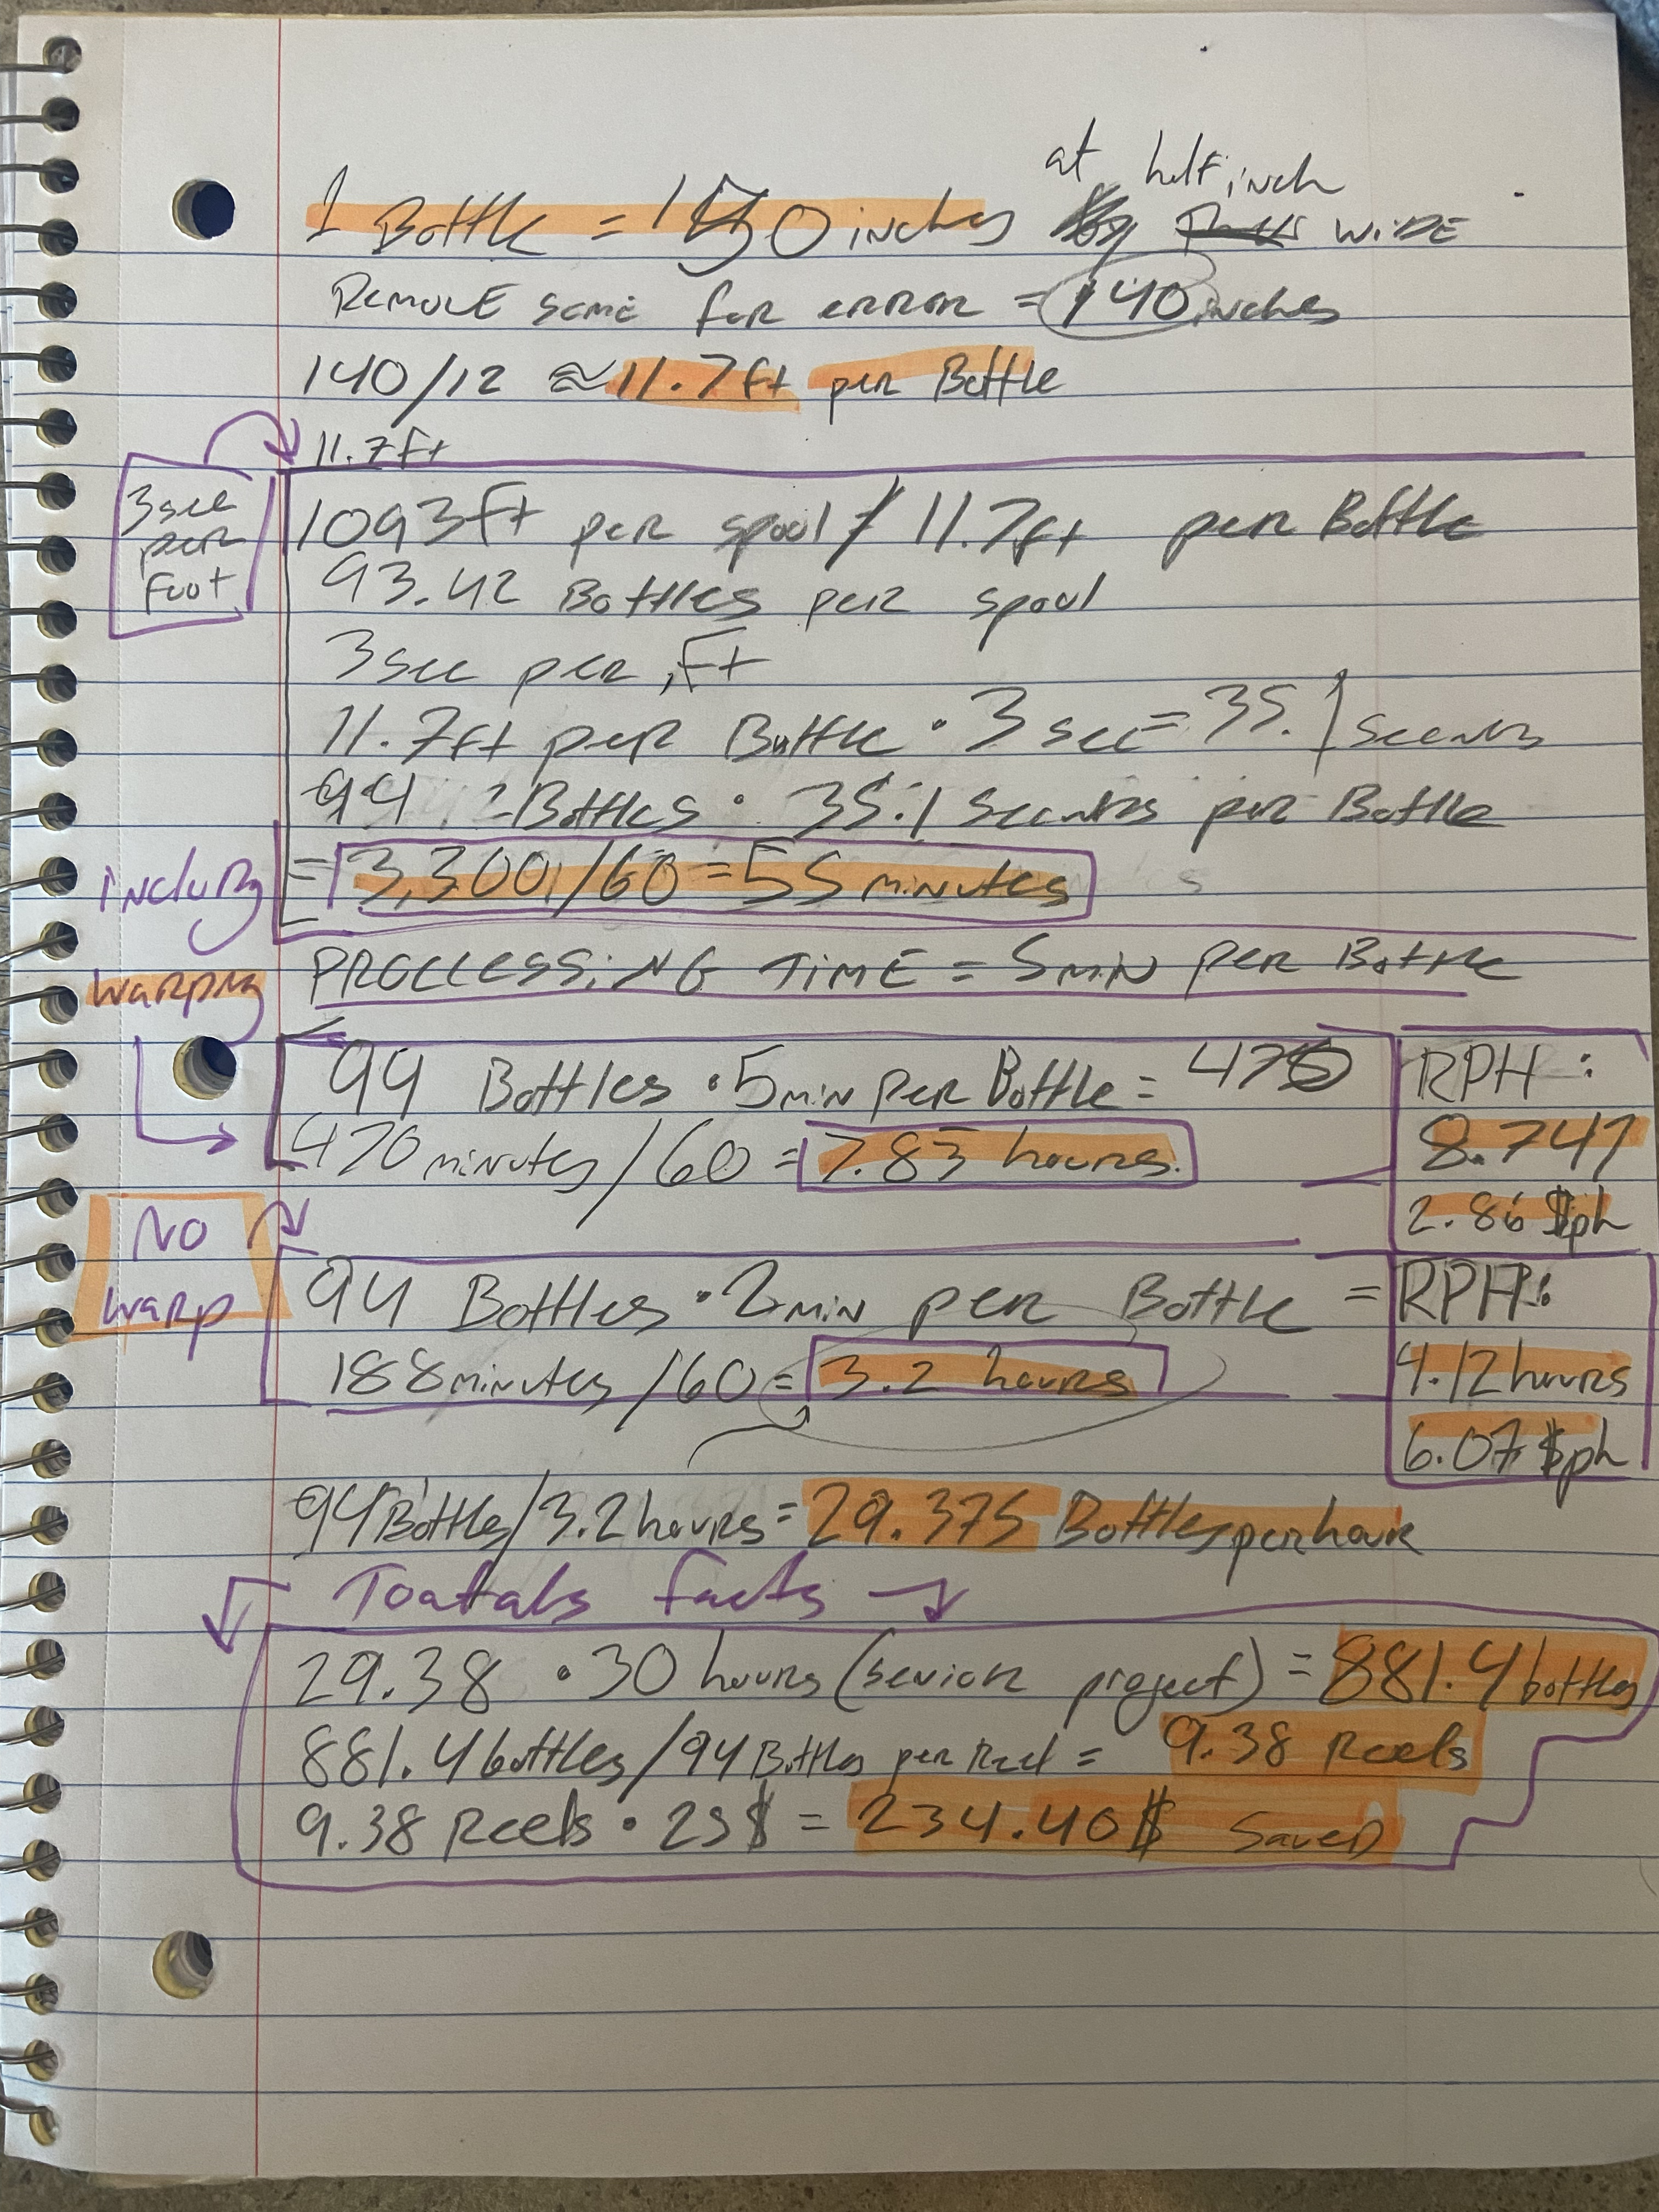 at half inch
1 Bottle = 150 inches WIDE
Remove some for error = 140 inches
140/12 ≈ 11.7ft per Bottle
11.7ft
3 sec
per
Foot
1093ft per spool / 11.7ft per Bottle
93.42 Bottles per spool
3 sec per Ft
11.7ft per Bottle · 3 sec = 35.1 seconds
94 Bottles · 35.1 Seconds per Bottle
= 3,300/60 = 55 minutes
includg
warpng
PROCCESSiNG TiME = 5 MiN per Bottle
94 Bottles · 5 min per Bottle = 470
470 minutes / 60 = 7.83 hours.
RPH:
8.747
2.86 $ph
NO
warp
94 Bottles · 2 min per Bottle =
188 minutes / 60 = 3.2 hours
RPH:
4.12 hours
6.07 $ph
94 Bottles / 3.2 hours = 29.375 Bottles per hour
Toatals facts
29.38 · 30 hours (senior project) = 881.4 bottles
881.4 bottles / 94 Bottles per Reel = 9.38 Reels
9.38 Reels · 25$ = 234.40$ Saved